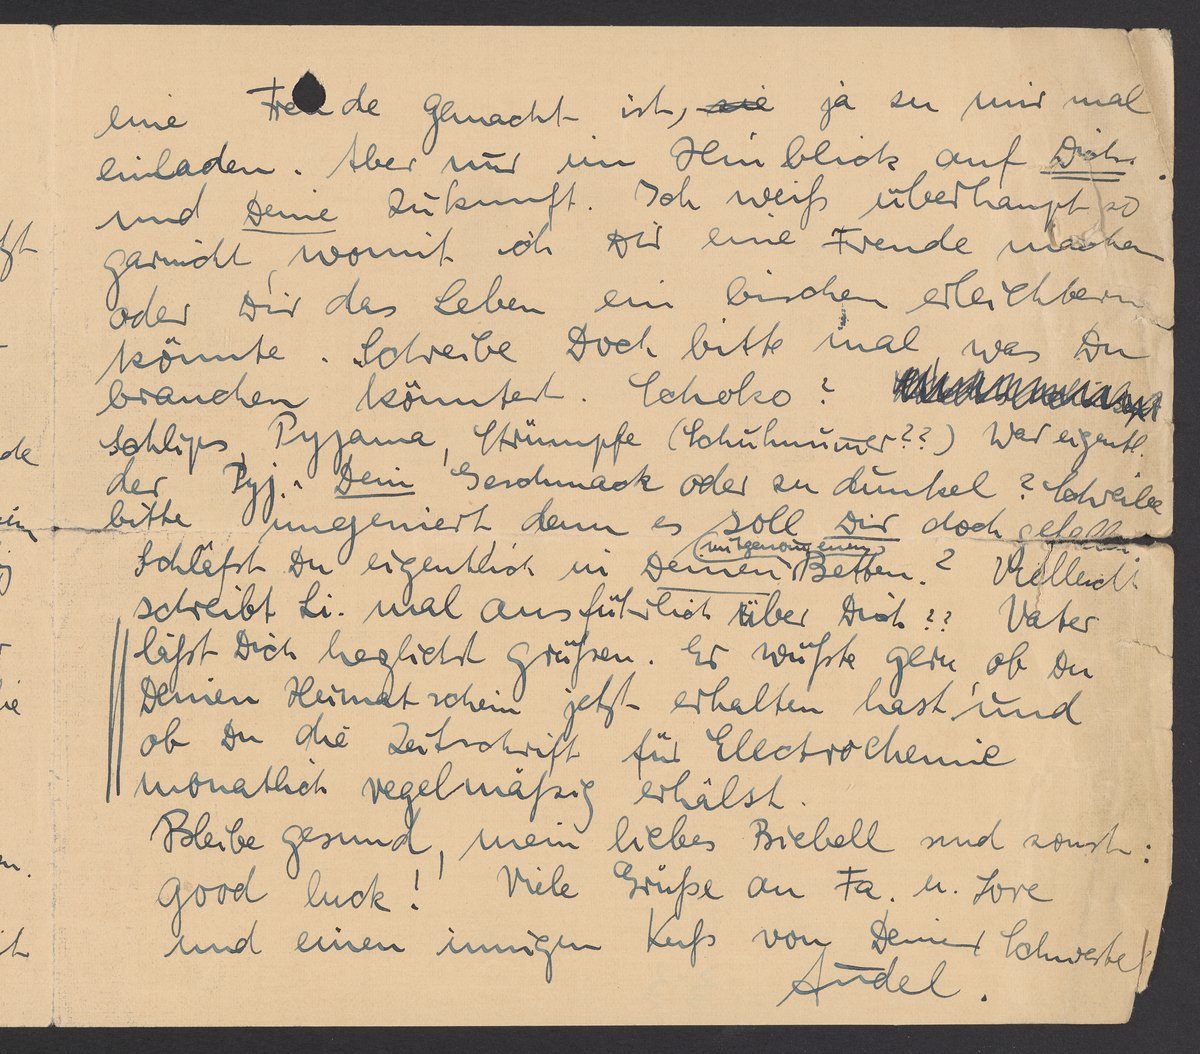 eine Freude gemacht ist, sie ja zu mir mal
einladen. Aber nur im Hinblick auf Dich
und Deine Zukunft. Ich weiß überhaupt so
garnicht, womit ich Dir eine Freude machen
oder Dir das Leben ein bischen erleichtern
könnte. Schreibe Doch bitte mal, was Du
brauchen könntest. Schoko?
Schlips, Pyjama, Strümpfe (Schuhnumer??) War eigentl.
der Pyj. Dein Geschmack oder zu dunkel? Schreibe
bitte ungeniert, denn es soll Dir doch gefallen.
(mitgenommenen)
Schläfst Du eigentlich in Deinen Betten? Vielleicht
schreibt Li. mal ausführlich über Dich?? Vater
läßt Dich herzlichst grüßen. Er wüßte gern, ob Du
Deinen Heimatschein jetzt erhalten hast und
ob Du die Zeitschrift für Electrochemie
monatlich regelmäßig erhälst.
Bleibe gesund, mein liebes Biebell und sonst:
good luck! Viele Grüße an Fa. u. Lore
und einen innigen Kuß von Deiner Schwester
Audel.
ft
de
ein
ie